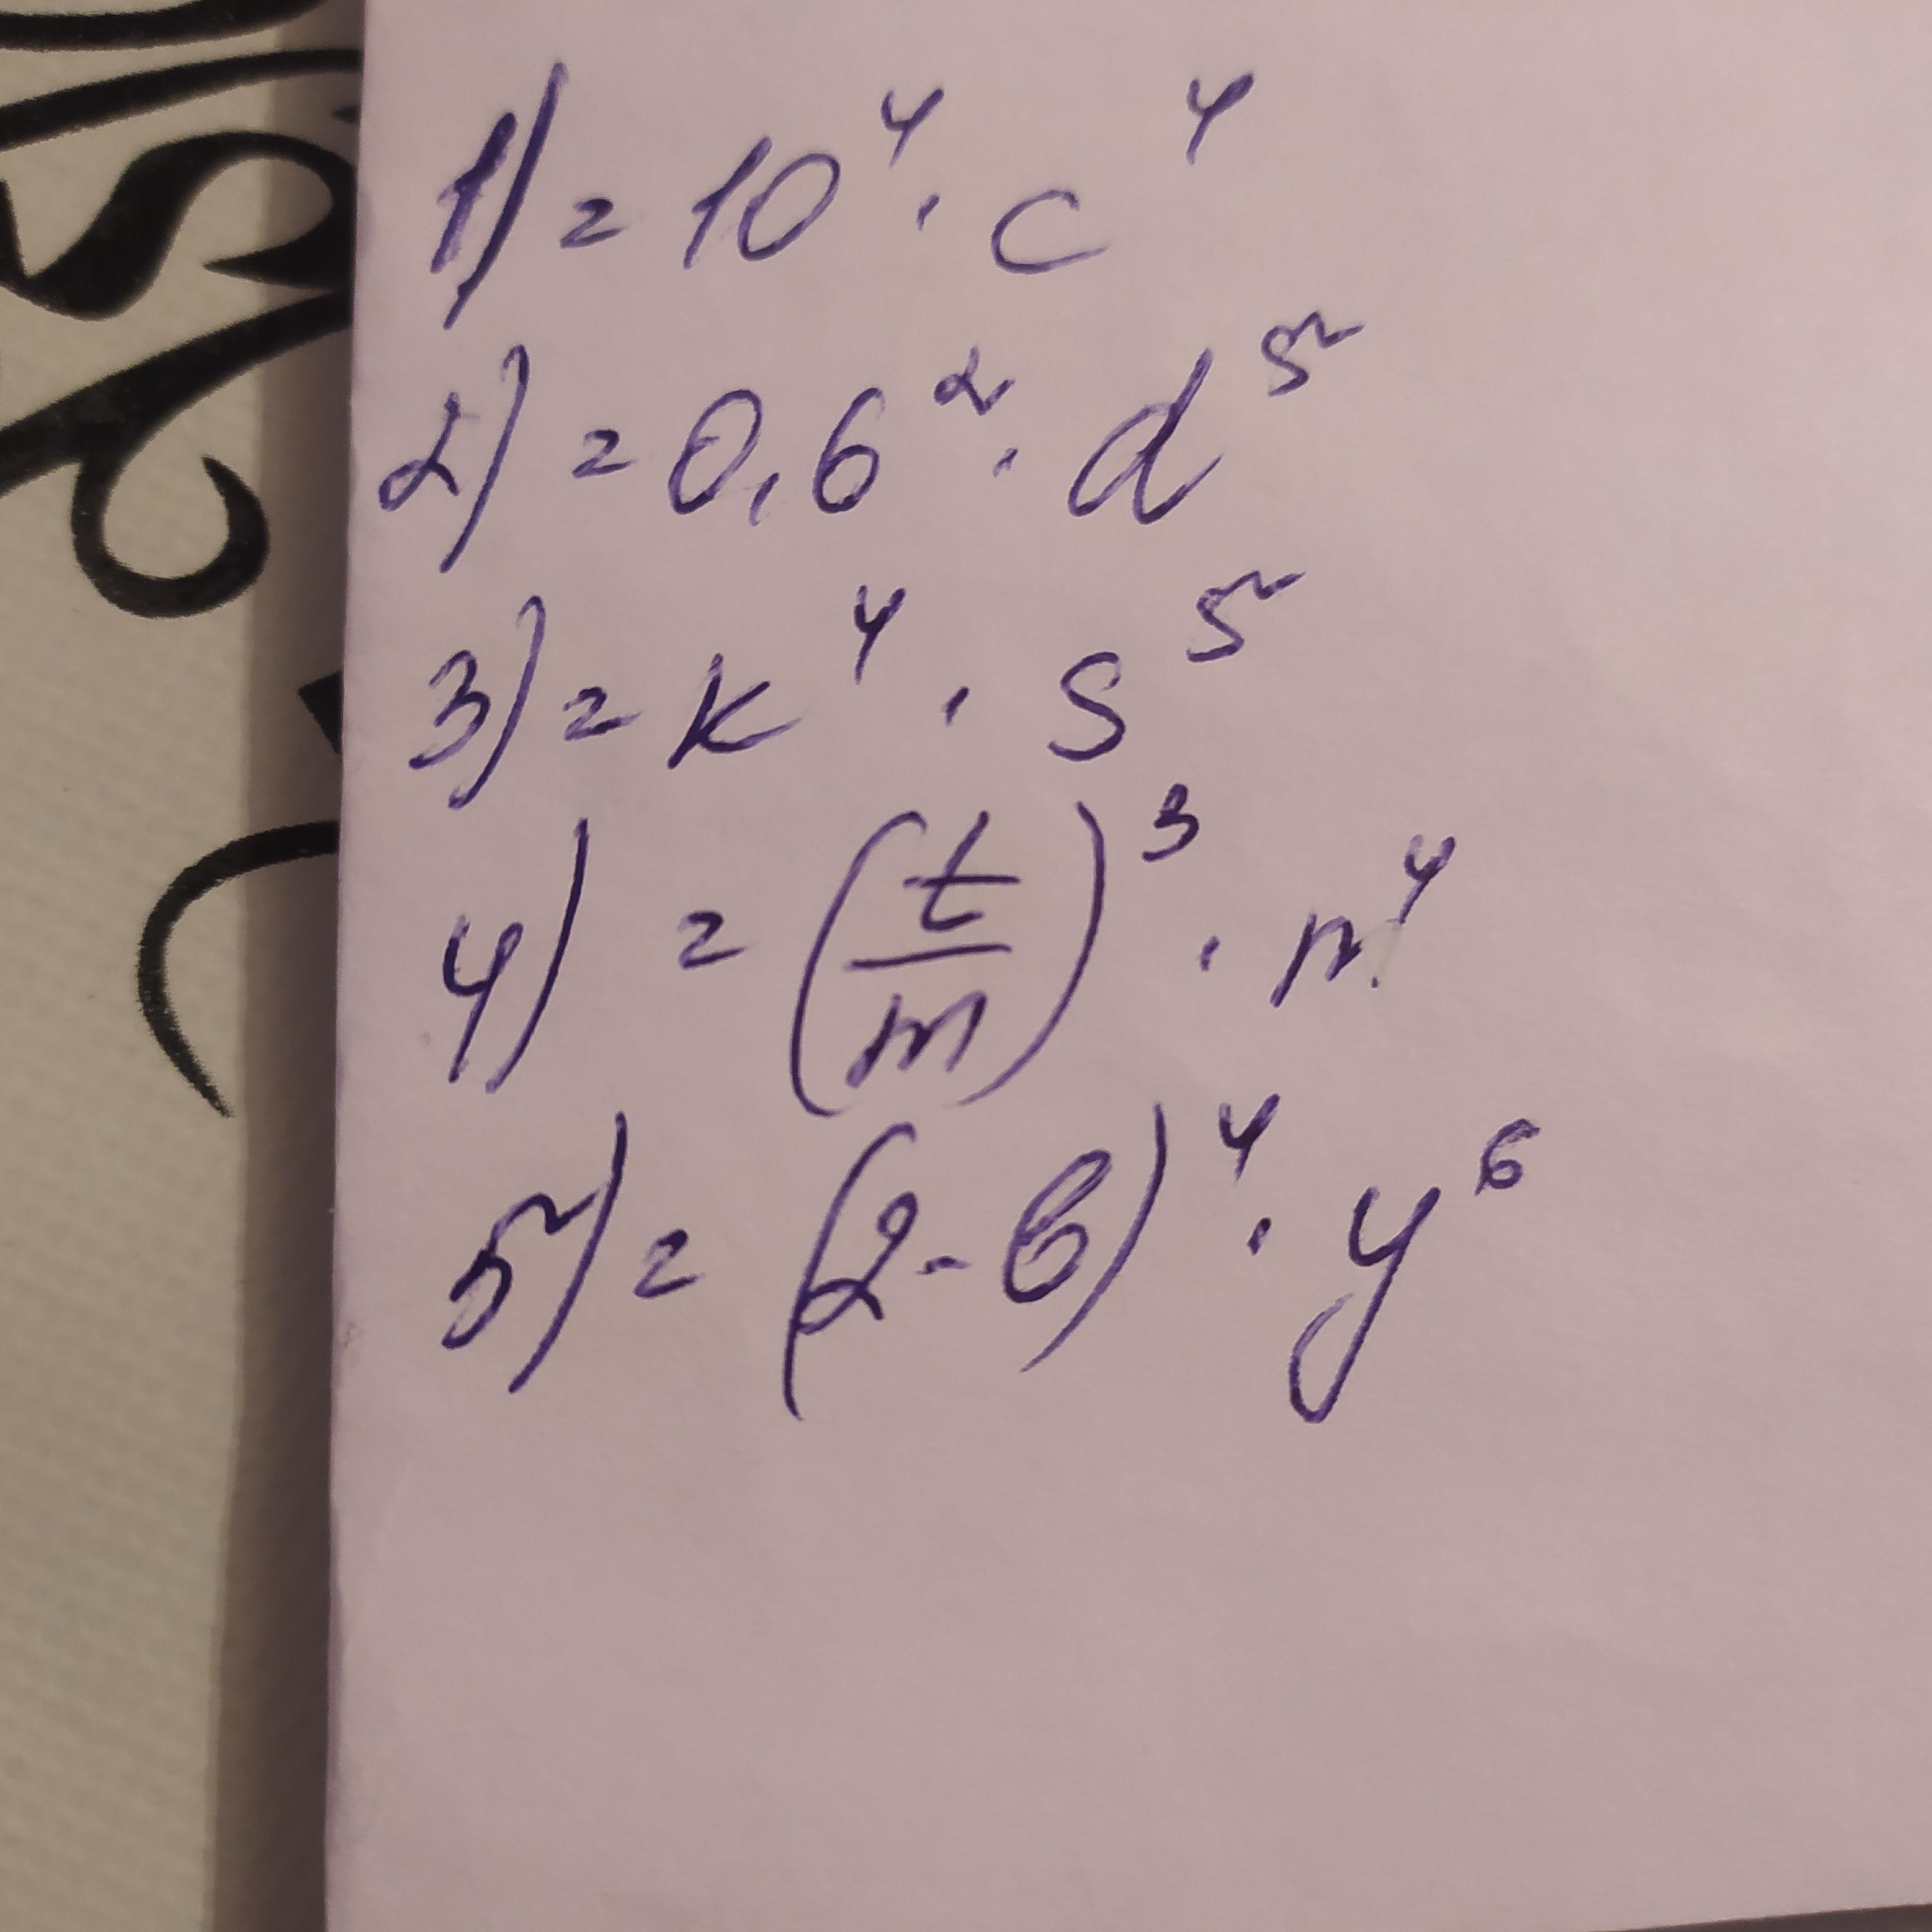 1) = 10⁴ · c⁴
2) = 0,6² · d⁵
3) = k⁴ · s⁵
4) = (t/m)³ · n⁴
5) = (2-b)⁴ · y⁶